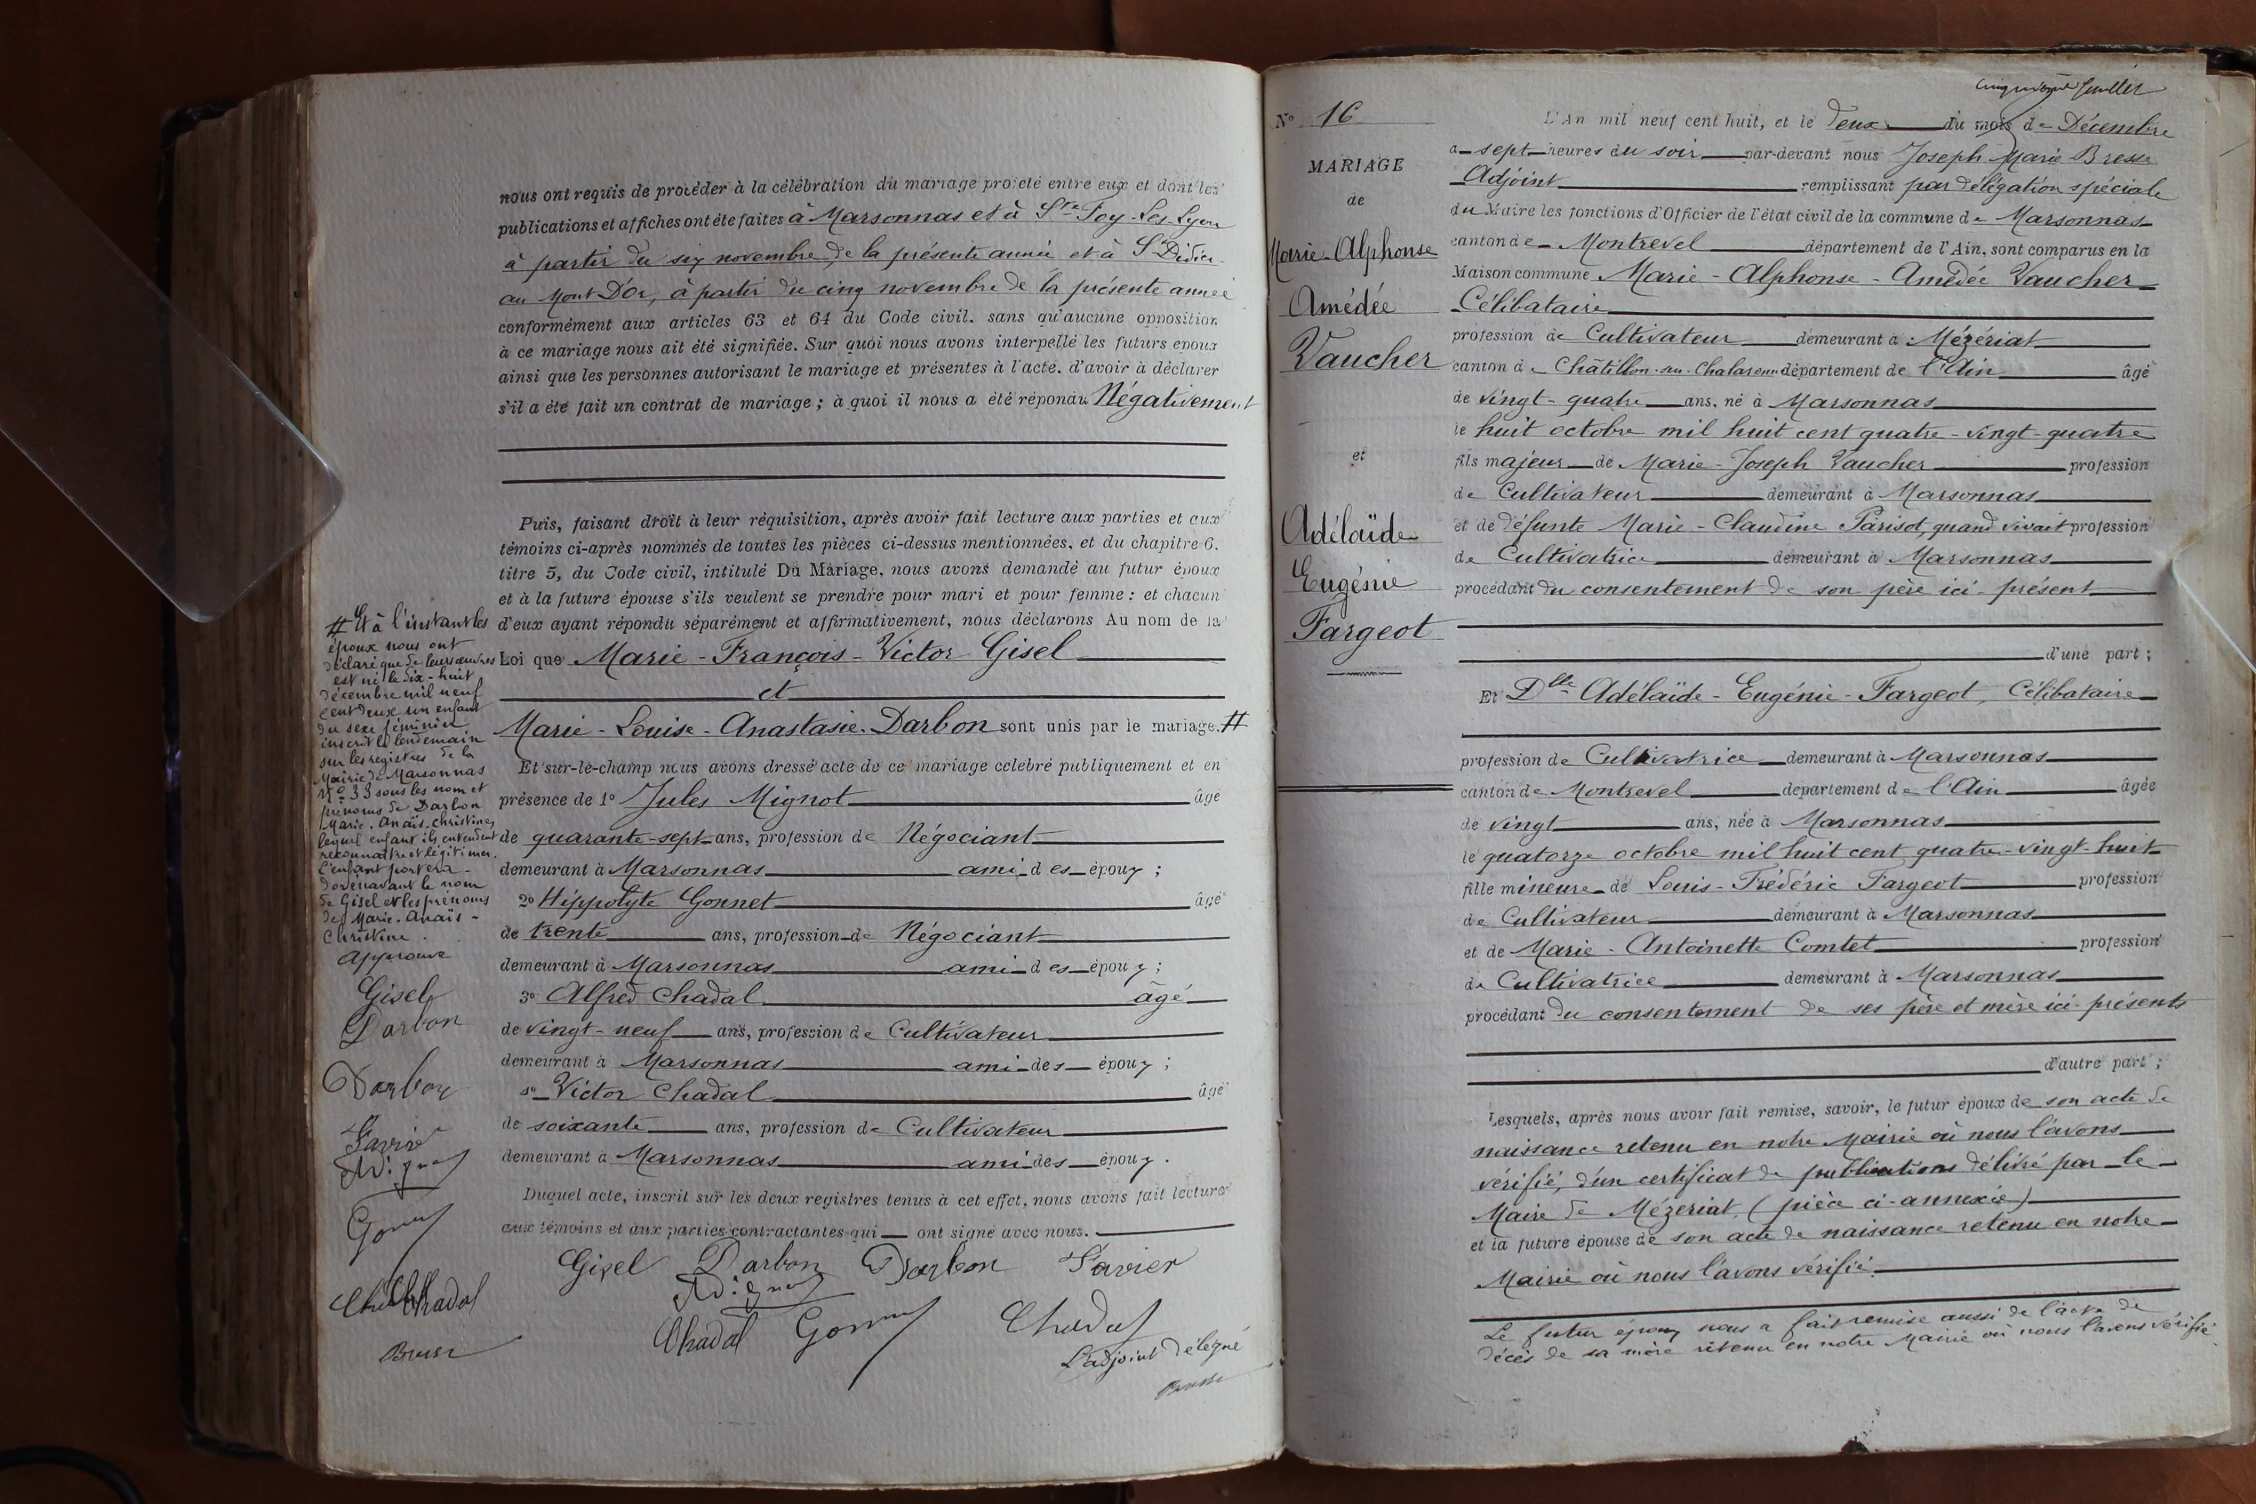 nous ont requis de procéder à la célébration du mariage projeté entre eux et dont les
publications et affiches ont été faites à Marsonnas et à Ste Foy-Les-Lyon
à partir du six novembre de la présente année et à St Didier
au Mont D'Or, à partir du cinq novembre de la présente année
conformément aux articles 63 et 64 du Code civil. sans qu'aucune opposition
à ce mariage nous ait été signifiée. Sur quoi nous avons interpellé les futurs époux
ainsi que les personnes autorisant le mariage et présentes à l'acte. d'avoir à déclarer
s'il a été fait un contrat de mariage ; à quoi il nous a été répondu Négativement
Puis, faisant droit à leur réquisition, après avoir fait lecture aux parties et aux
témoins ci-après nommés de toutes les pièces ci-dessus mentionnées, et du chapitre 6.
titre 5, du Code civil, intitulé Du Mariage, nous avons demandé au futur époux
et à la future épouse s'ils veulent se prendre pour mari et pour femme : et chacun
d'eux ayant répondu séparément et affirmativement, nous déclarons Au nom de la
Loi que Marie - François - Victor Gisel
et
Marie - Louise - Anastasie. Darbon sont unis par le mariage. #
Et sur-le-champ nous avons dressé acte de ce mariage célébré publiquement et en
présence de 1° Jules Mignot âgé
de quarante-sept ans, profession de Négociant
demeurant à Marsonnas ami des époux ;
2° Hippolyte Gonnet âgé
de trente ans, profession de Négociant
demeurant à Marsonnas ami des époux ;
3° Alfred Chadal âgé
de vingt-neuf ans, profession de Cultivateur
demeurant à Marsonnas ami des époux ;
4° Victor Chadal âgé
de soixante ans, profession de Cultivateur
demeurant à Marsonnas ami des époux .
Duquel acte, inscrit sur les deux registres tenus à cet effet, nous avons fait lecture
aux témoins et aux parties contractantes qui ont signé avec nous.
Gisel Darbon Darbon Favier
Mignot
Chadal Gonnet Chadal
L'adjoint délégué
Bresse
# Et à l'instant les
époux nous ont
déclaré que de leurs œuvres
est né le dix-huit
décembre mil neuf
cent deux un enfant
du sexe féminin
inscrit le lendemain
sur les registres de la
Mairie de Marsonnas
N° 33 sous les nom et
prénoms de Darbon
Marie. Anaïs. Christine,
lequel enfant ils entendent
reconnaître et légitimer.
L'enfant portera
dorénavant le nom
de Gisel et les prénoms
de Marie. Anaïs -
Christine.
Approuvé
Gisel
Darbon
Darbon
Favier
Mignot
Gonnet
Chadal Chadal
Bresse
feuillet
N° 16
MARIAGE
de
Marie-Alphonse
Amédée
Vaucher
et
Adélaïde
Eugénie
Fargeot
L'An mil neuf cent huit, et le deux du mois de Décembre
à sept heures du soir par-devant nous Joseph Marie Bresse
Adjoint remplissant par délégation spéciale
du Maire les fonctions d'Officier de l'état civil de la commune de Marsonnas
canton de Montrevel département de l'Ain, sont comparus en la
Maison commune Marie - Alphonse - Amédée Vaucher
Célibataire
profession de Cultivateur demeurant à Mézériat
canton de Châtillon-sur-Chalaronne département de l'Ain âgé
de vingt-quatre ans, né à Marsonnas
le huit octobre mil huit cent quatre-vingt-quatre
fils majeur de Marie-Joseph Vaucher profession
de Cultivateur demeurant à Marsonnas
et de défunte Marie-Claudine Parisot, quand vivait profession
de Cultivatrice demeurant à Marsonnas
procédant du consentement de son père ici présent
d'une part ;
Et Dlle Adélaïde - Eugénie - Fargeot, Célibataire
profession de Cultivatrice demeurant à Marsonnas
canton de Montrevel département de l'Ain âgée
de vingt ans, née à Marsonnas
le quatorze octobre mil huit cent quatre-vingt-huit
fille mineure de Louis-Frédéric Fargeot profession
de Cultivateur demeurant à Marsonnas
et de Marie - Antoinette Comtet profession
de Cultivatrice demeurant à Marsonnas
procédant du consentement de ses père et mère ici présents
d'autre part ;
Lesquels, après nous avoir fait remise, savoir, le futur époux de son acte de
naissance retenu en notre Mairie où nous l'avons
vérifié, d'un certificat de publications délivré par le
Maire de Mézeriat (pièce ci-annexée)
et la future épouse de son acte de naissance retenu en notre
Mairie où nous l'avons vérifié.
Le futur époux nous a fait remise aussi de l'acte de
décès de sa mère retenu en notre Mairie où nous l'avons vérifié.